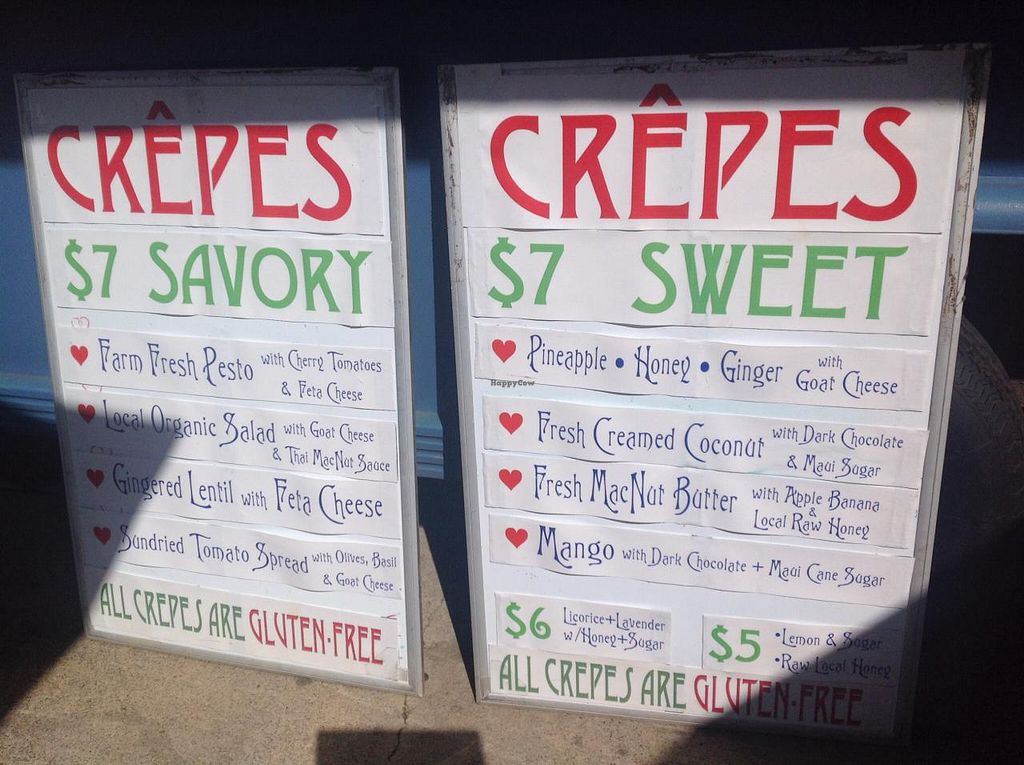 CRÊPES
$7 SAVORY
Farm Fresh Pesto with Cherry Tomatoes
& Feta Cheese
Local Organic Salad with Goat Cheese
& Thai MacNut Sauce
Gingered Lentil with Feta Cheese
Sundried Tomato Spread with Olives, Basil
& Goat Cheese
ALL CREPES ARE GLUTEN-FREE
CRÊPES
$7 SWEET
Pineapple • Honey • Ginger with
Goat Cheese
HappyCow
Fresh Creamed Coconut with Dark Chocolate
& Maui Sugar
Fresh MacNut Butter with Apple Banana
&
Local Raw Honey
Mango with Dark Chocolate + Maui Cane Sugar
$6 Licorice+Lavender
w/Honey+Sugar
$5 •Lemon & Sugar
•Raw Local Honey
ALL CREPES ARE GLUTEN-FREE